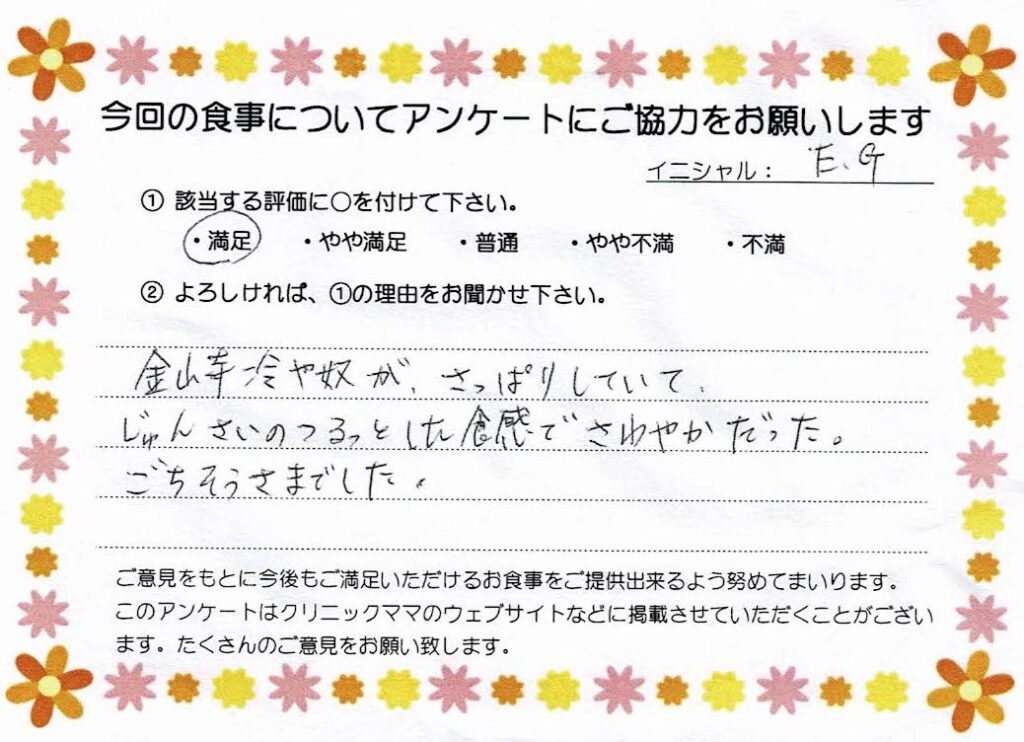 今回の食事についてアンケートにご協力をお願いします
イニシャル： E.G
① 該当する評価に○を付けて下さい。
・満足 ・やや満足 ・普通 ・やや不満 ・不満
② よろしければ、①の理由をお聞かせ下さい。
金山寺冷や奴が、さっぱりしていて、
じゅんさいのつるっとした食感でさわやかだった。
ごちそうさまでした。
ご意見をもとに今後もご満足いただけるお食事をご提供出来るよう努めてまいります。
このアンケートはクリニックママのウェブサイトなどに掲載させていただくことがござい
ます。たくさんのご意見をお願い致します。